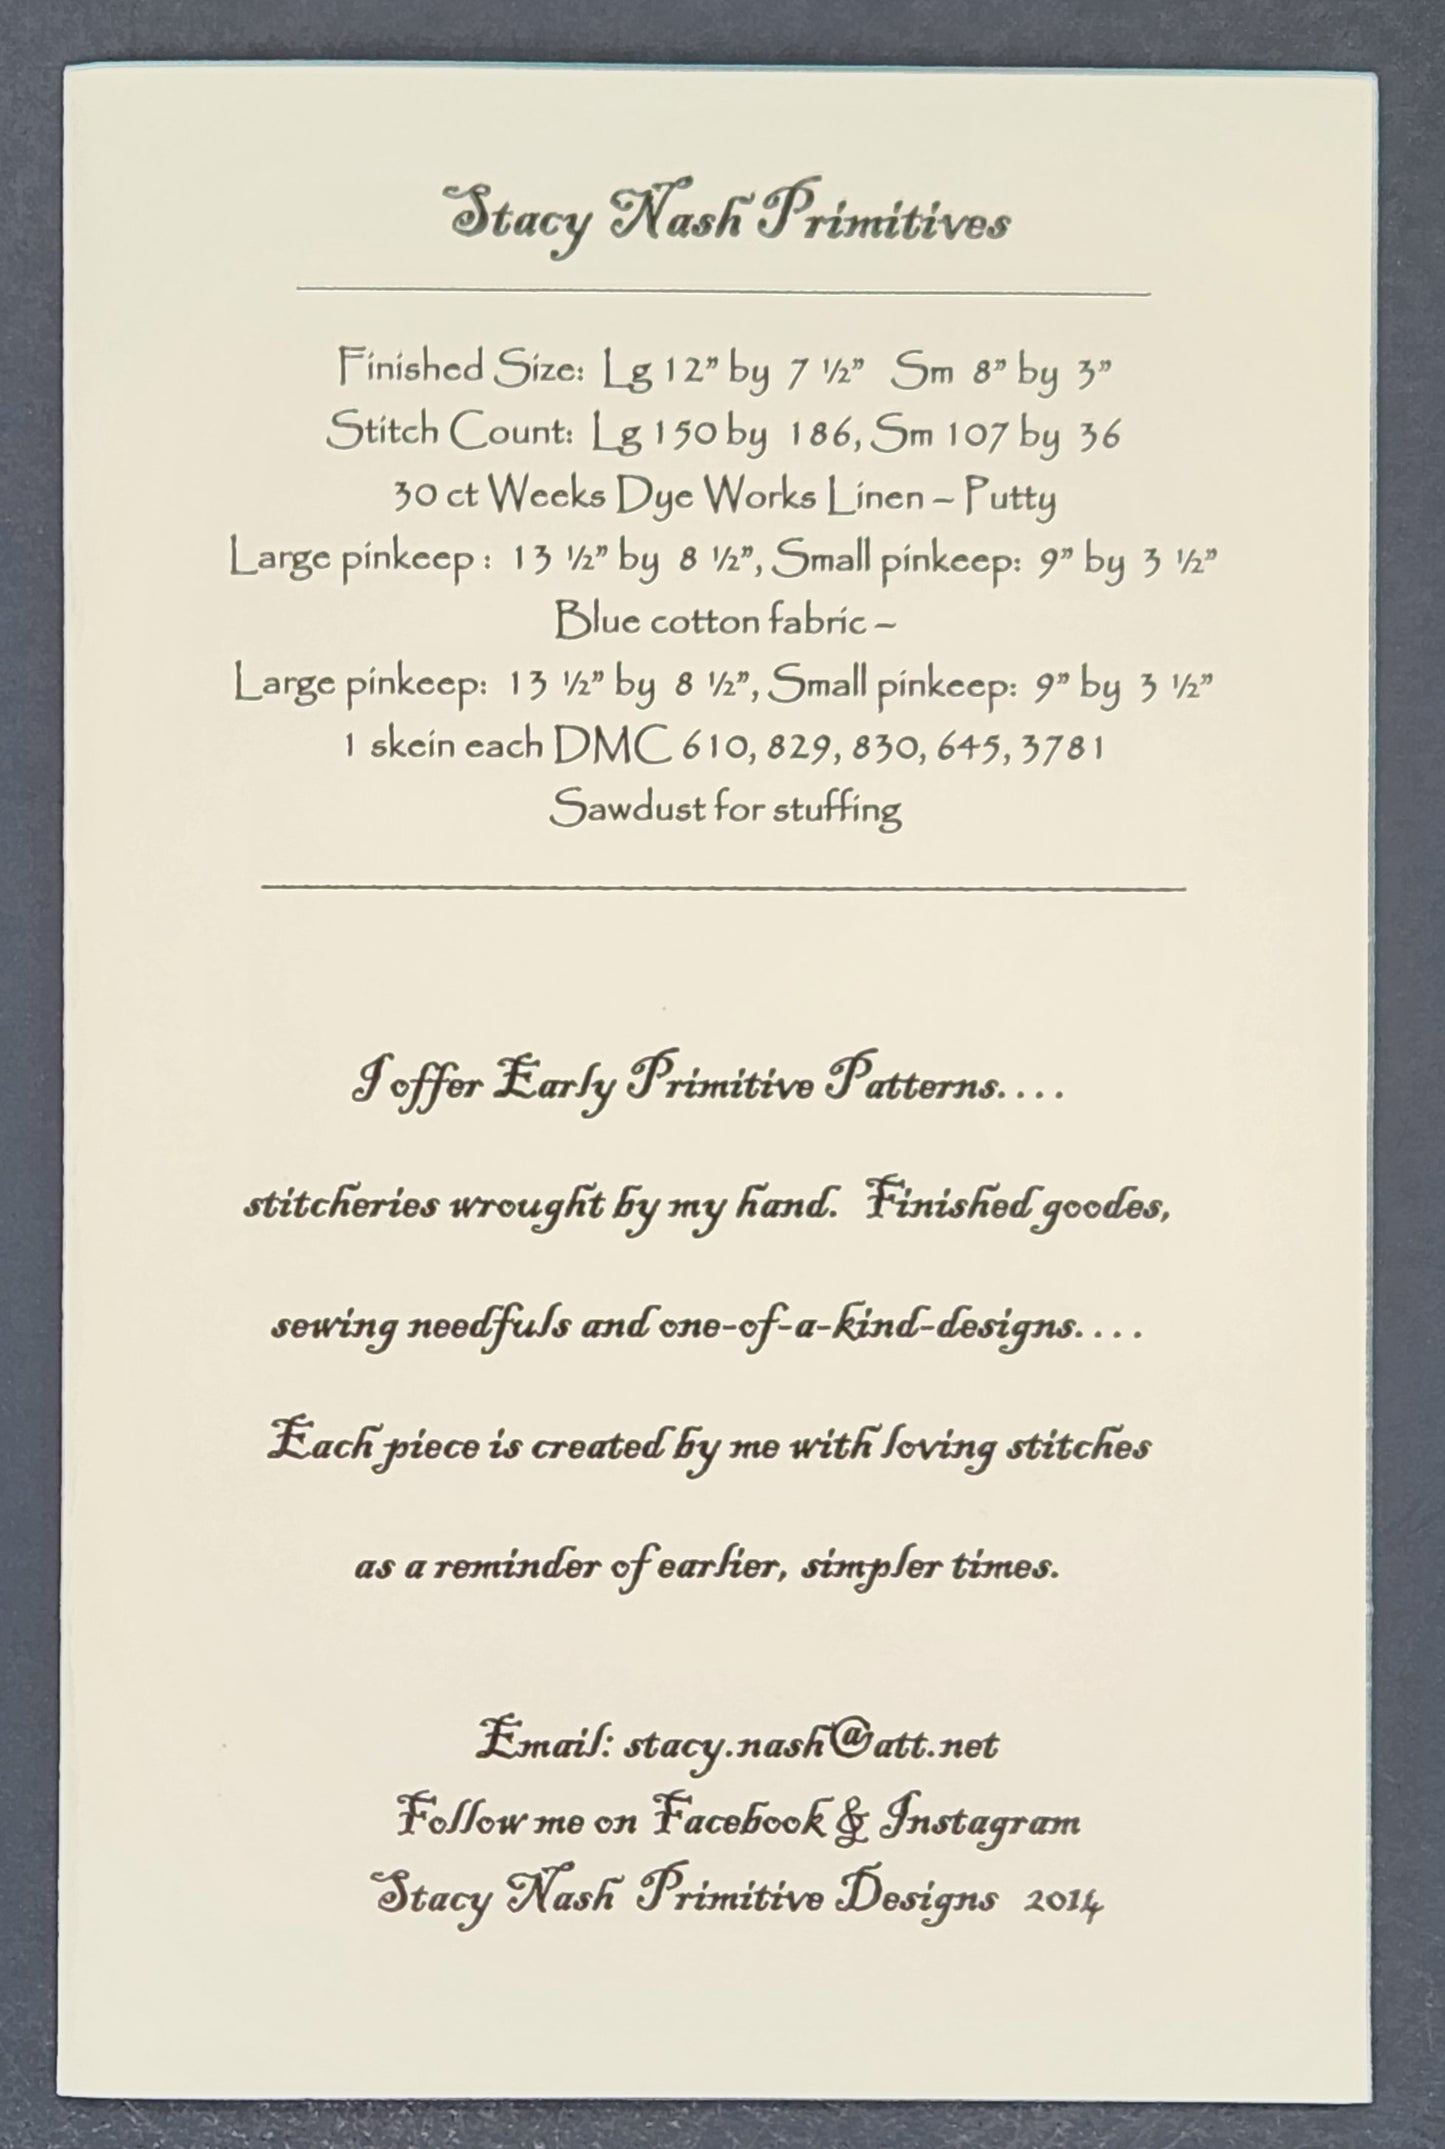 Stacy Nash Primitives
Finished Size: Lg 12” by 7 ½” Sm 8” by 3”
Stitch Count: Lg 150 by 186, Sm 107 by 36
30 ct Weeks Dye Works Linen ~ Putty
Large pinkeep : 13 ½” by 8 ½”, Small pinkeep: 9” by 3 ½”
Blue cotton fabric ~
Large pinkeep: 13 ½” by 8 ½”, Small pinkeep: 9” by 3 ½”
1 skein each DMC 610, 829, 830, 645, 3781
Sawdust for stuffing
I offer Early Primitive Patterns....
stitcheries wrought by my hand. Finished goodes,
sewing needfuls and one-of-a-kind-designs....
Each piece is created by me with loving stitches
as a reminder of earlier, simpler times.
Email: stacy.nash@att.net
Follow me on Facebook & Instagram
Stacy Nash Primitive Designs 2014